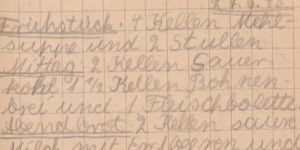 27.6.
Frühstück. 4 Kellen Mehl-
suppe und 2 Stullen
Mittag 2 Kellen Sauer-
kohl 1 1/2 Kellen Bohnen-
brei und 1 Fleischbolette
Abendbrot 2 Kellen saure
Milch mit Erdbeeren und